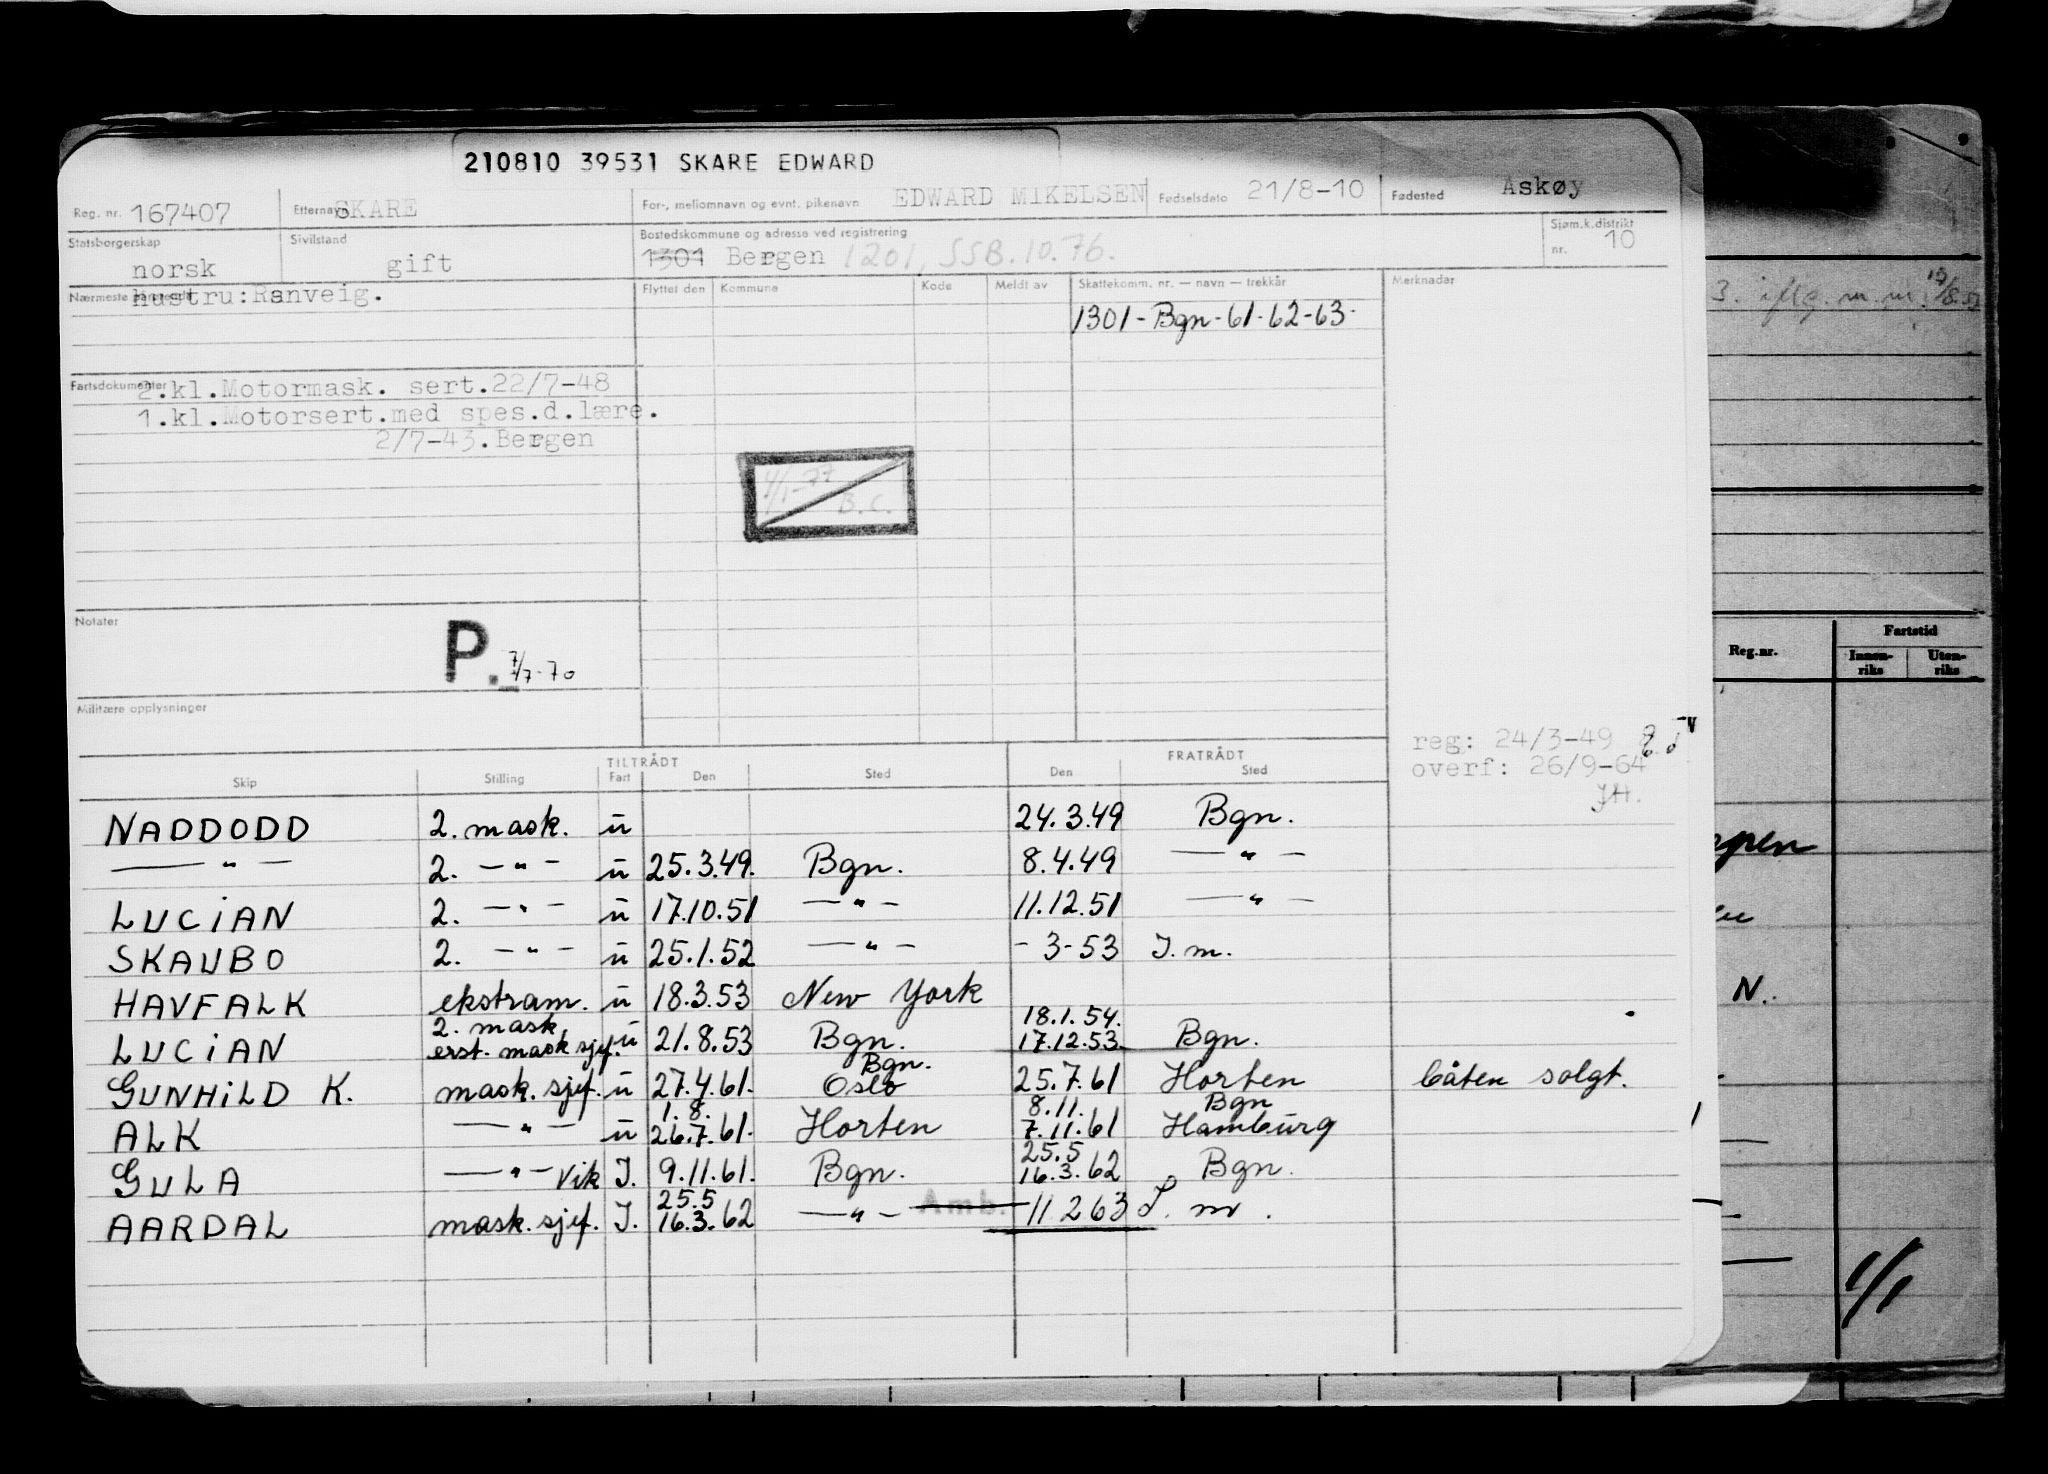 210810 39531 SKARE EDWARD
Reg. nr. 167407 Etternavn SKARE For-, mellomnavn og evnt. pikenavn EDWARD MIKELSEN Fødselsdato 21/8-10 Fødested Askøy
Statsborgerskap norsk Sivilstand gift Bostedskommune og adresse ved registrering 1301 Bergen 1201, SSB.10.76. Sjøm.k.distrikt nr. 10
Nærmeste pårørende hustru:Ranveig. Flyttet den Kommune Kode Meldt av Skattekomm. nr. — navn — trekkår Merknader
1301-Bgn-61-62-63-
3. iflg. m.m. 19/8.53
Fartsdokumenter 2.kl.Motormask. sert.22/7-48
1.kl.Motorsert.med spes.d.lære.
2/7-43.Bergen
1/1-77
B.C.
Notater
P. 7/7-70
Militære opplysninger
reg: 24/3-49
overf: 26/9-64
JH.
Reg.nr. Fartstid
Innen-riks Uten-riks
TILTRÅDT FRATRÅDT
Skip Stilling Fart Den Sted Den Sted
NADDODD 2. mask. u 24.3.49 Bgn.
— " — 2. — " — u 25.3.49. Bgn. 8.4.49 — " —
LUCIAN 2. — " — u 17.10.51 — " — 11.12.51 — " —
SKAUBO 2. — " — u 25.1.52 — " — - 3-53 I. m.
HAVFALK ekstram. u 18.3.53 New York
2. mask. 18.1.54.
LUCIAN erst. mask sjef. u 21.8.53 Bgn. 17.12.53. Bgn.
Bgn.
GUNHILD K. mask. sjef. u 27.4.61. Oslo 25.7.61 Horten båten solgt.
1.8. 8.11. Bgn
ALK — " — u 26.7.61. Horten 7.11.61 Hamburg
25.5
GULA — " — Vik I. 9.11.61. Bgn. 16.3.62 Bgn.
25.5
AARDAL mask. sjef. I. 16.3.62 — " — Amb. 11 2 63 I. m.
N.
1/1